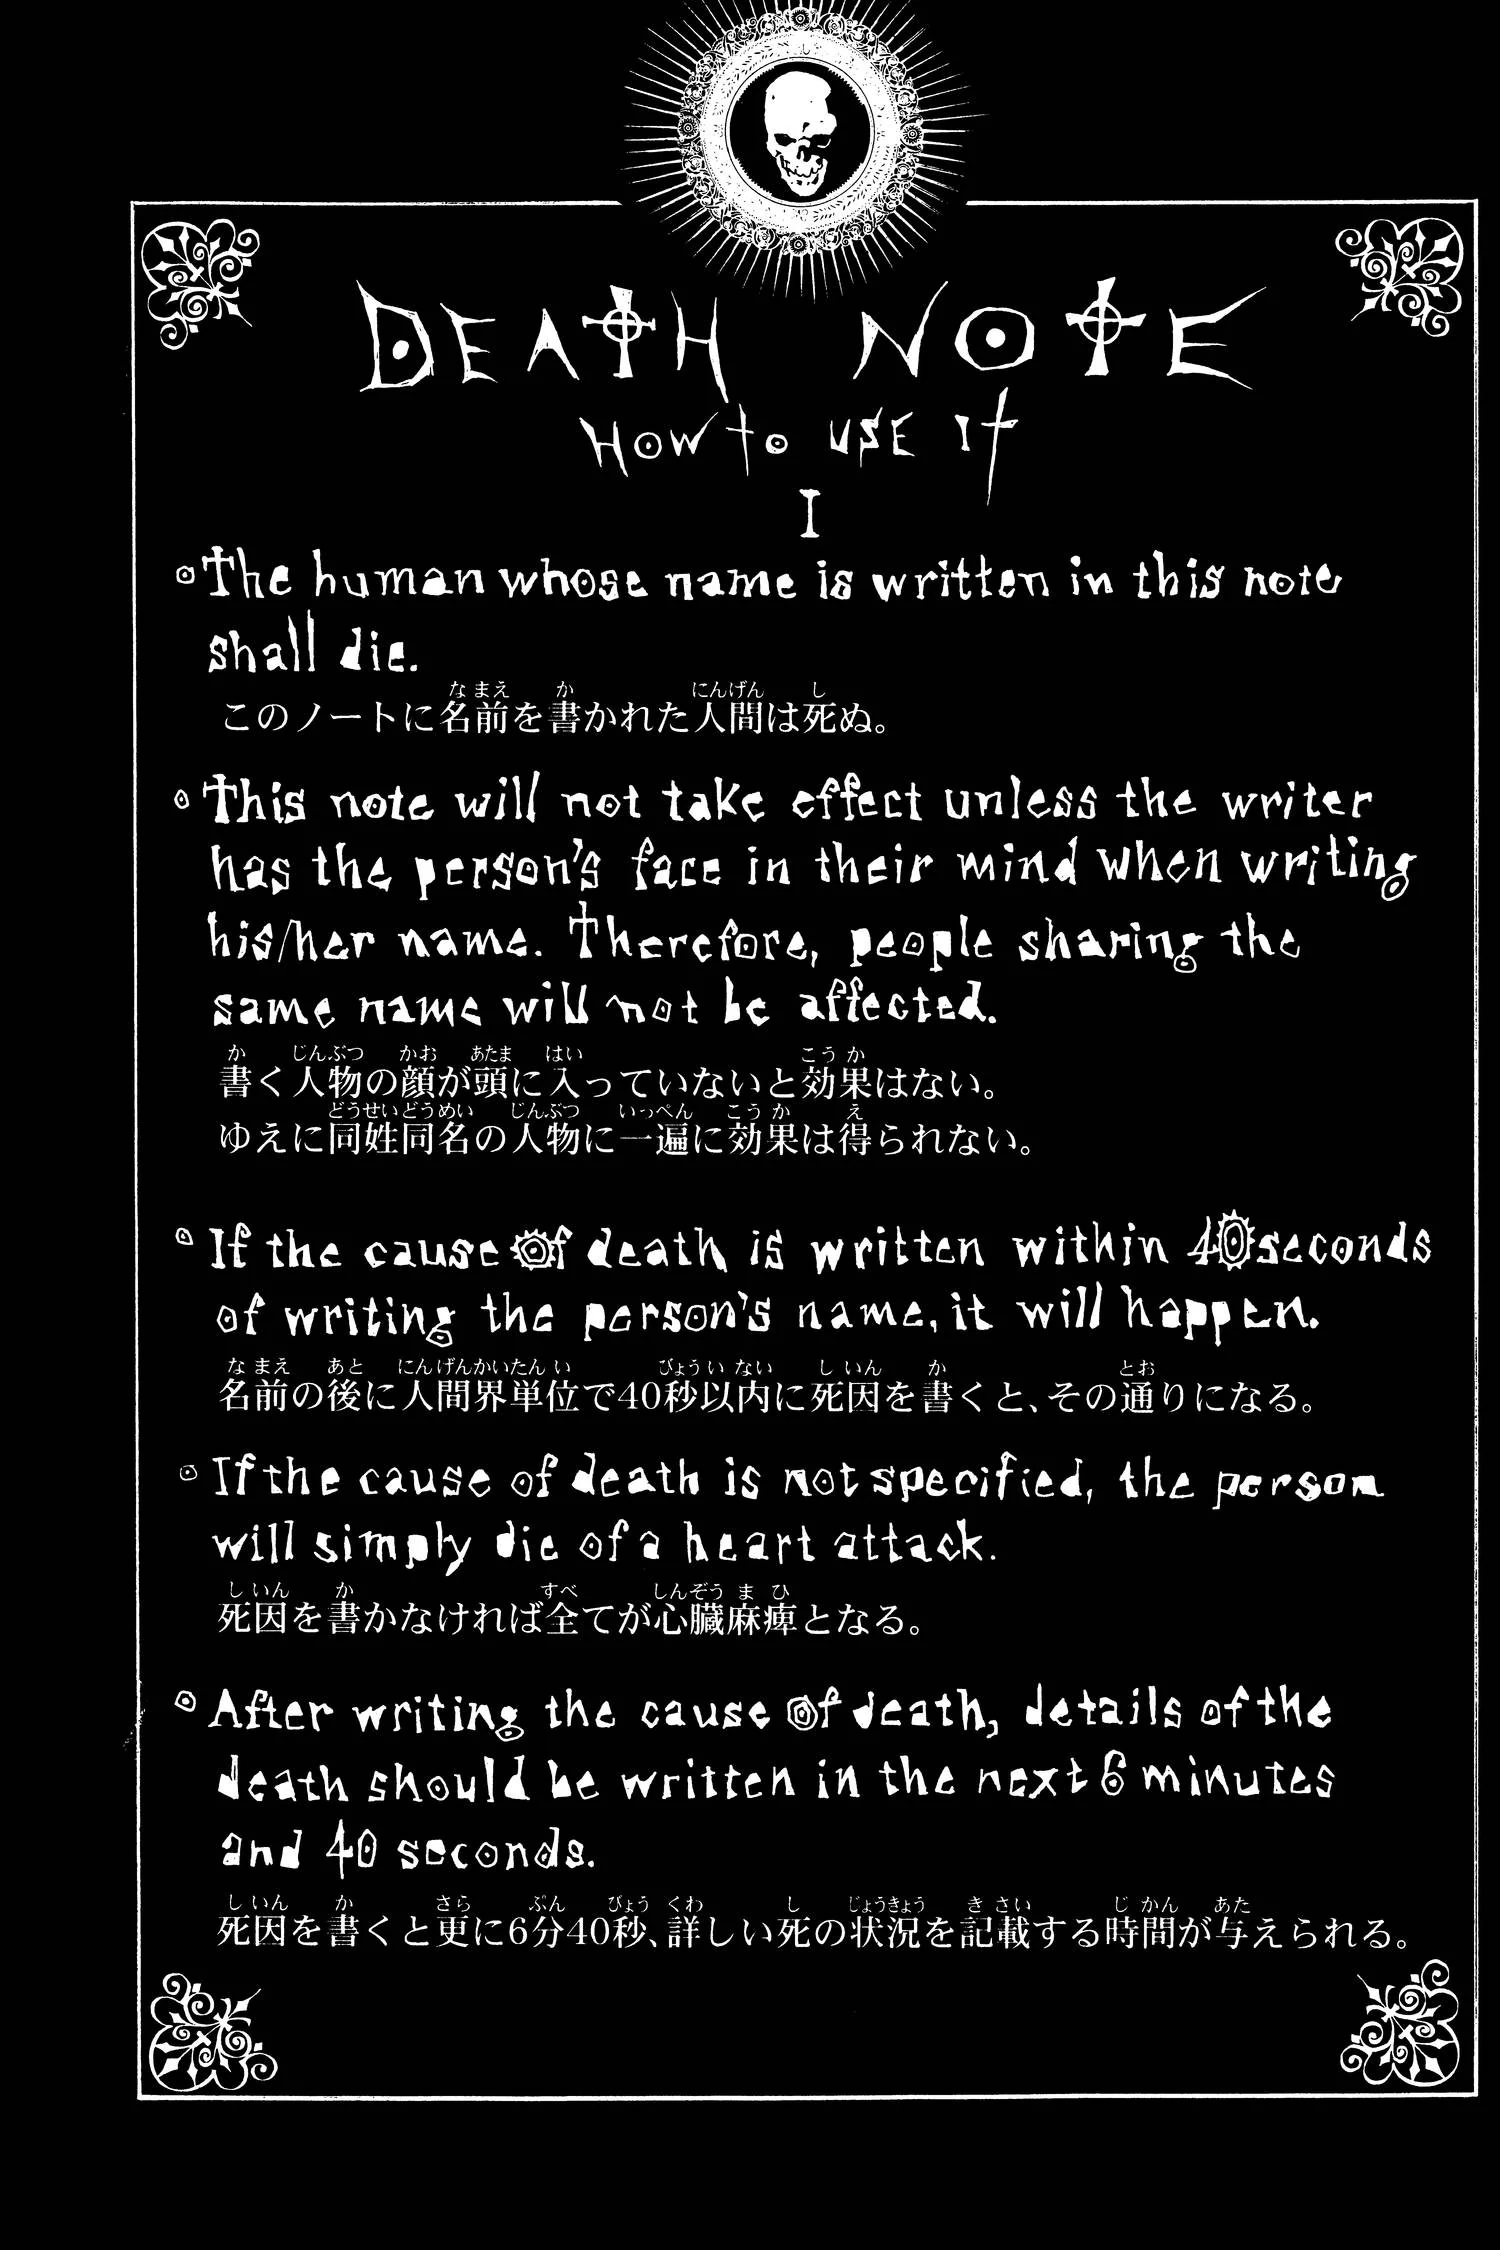 DEATH NOTE
HOW to USE It
I
The human whose name is written in this note
shall die.
なまえ か にんげん し
このノートに名前を書かれた人間は死ぬ。
This note will not take effect unless the writer
has the person's face in their mind when writing
his/her name. Therefore, people sharing the
same name will not be affected.
か じんぶつ かお あたま はい こうか
書く人物の顔が頭に入っていないと効果はない。
どうせいどうめい じんぶつ いっぺん こうか え
ゆえに同姓同名の人物に一遍に効果は得られない。
If the cause of death is written within 40 seconds
of writing the person's name, it will happen.
なまえ あと にんげんかいたんい びょういない しいん か とお
名前の後に人間界単位で40秒以内に死因を書くと、その通りになる。
If the cause of death is not specified, the person
will simply die of a heart attack.
しいん か すべ しんぞうまひ
死因を書かなければ全てが心臓麻痺となる。
After writing the cause of death, details of the
death should be written in the next 6 minutes
and 40 seconds.
しいん か さら ぷん びょう くわ し じょうきょう きさい じかん あた
死因を書くと更に6分40秒、詳しい死の状況を記載する時間が与えられる。